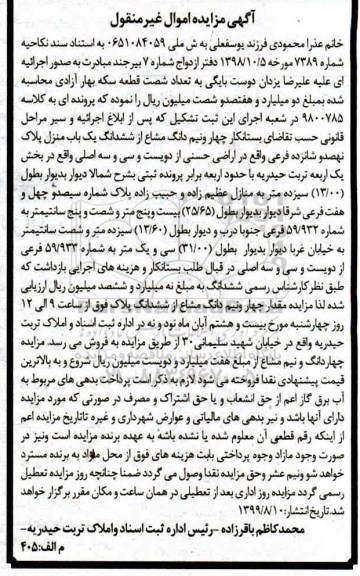 آگهی مزایده اموال غیر منقول
خانم عذرا محمودی فرزند یوسفعلی به ش ملی ۰۶۵۱۰۸۴۰۵۹ به استناد سند نکاحیه
شماره ۷۳۸۹ مورخه ۱۳۹۸/۱۰/۵ دفتر ازدواج شماره ۷ بیرجند مبادرت به صدور اجرائیه
ای علیه علیرضا یزدان دوست بایگی به تعداد شصت قطعه سکه بهار آزادی محاسبه
شده بمبلغ دو میلیارد و هفتصدو شصت میلیون ریال را نموده که پرونده ای به کلاسه
۹۸۰۰۷۸۵ در شعبه اجرای این ثبت تشکیل که پس از ابلاغ اجرائیه و سیر مراحل
قانونی حسب تقاضای بستانکار چهار ونیم دانگ مشاع از ششدانگ یک باب منزل پلاک
نهصدو شانزده فرعی واقع در اراضی حسنی از دویست و سی و سه اصلی واقع در بخش
یک اربعه تربت حیدریه با حدود اربعه برابر پرونده ثبتی بشرح شمالا دیوار بدیوار بطول
(۱۳/۰۰) سیزده متر به منازل عظیم زاده و حبیب زاده پلاک شماره سیصدو چهل و
هفت فرعی شرقا دیوار بدیوار بطول (۲۵/۶۵) بیست وپنج متر و شصت و پنج سانتیمتر به
شماره ۵۹/۹۳۲ فرعی جنوبا درب و دیوار بطول (۱۳/۶۰) سیزده متر و شصت سانتیمتر
به خیابان غربا دیوار بدیوار بطول (۳۱/۰۰) سی و یک متر به شماره ۵۹/۹۳۳ فرعی
از دویست و سی و سه اصلی در قبال طلب بستانکار و هزینه های اجرایی بازداشت که
طبق نظر کارشناس رسمی ششدانگ به مبلغ نه میلیارد و ششصد میلیون ریال ارزیابی
شده لذا مزایده مقدار چهار ونیم دانگ مشاع از ششدانگ پلاک فوق از ساعت ۹ الی ۱۲
روز چهارشنبه مورخ بیست و هشتم آبان ماه نود و نه در اداره ثبت اسناد و املاک تربت
حیدریه واقع در خیابان شهید سلیمانی ۳۰ از طریق مزایده به فروش می رسد. مزایده
چهاردانگ و نیم مشاع از مبلغ هفت میلیارد و دویست میلیون ریال شروع و به بالاترین
قیمت پیشنهادی نقدا فروخته می شود لازم به ذکر است پرداخت بدهی های مربوط به
آب برق گاز اعم از حق انشعاب و یا حق اشتراک و مصرف در صورتی که مورد مزایده
دارای آنها باشد و نیر بدهی های مالیاتی و عوارض شهرداری و غیره تاتاریخ مزایده اعم
از اینکه رقم قطعی آن معلوم شده یا نشده باشد به عهده برنده مزایده است ونیز در
صورت وجود مازاد وجوه پرداختی بابت هزینه های فوق از محل مازاد به برنده مسترد
خواهد شو ونیم عشر وحق مزایده نقدا وصول می گردد ضمنا چنانچه روز مزایده تعطیل
رسمی گردد مزایده روز اداری بعد از تعطیلی در همان ساعت و مکان مقرر برگزار خواهد
شد.تاریخ انتشار:۱۳۹۹/۸/۱۰
محمدکاظم باقرزاده -رئیس اداره ثبت اسناد واملاک تربت حیدریه-
م الف:۴۰۵